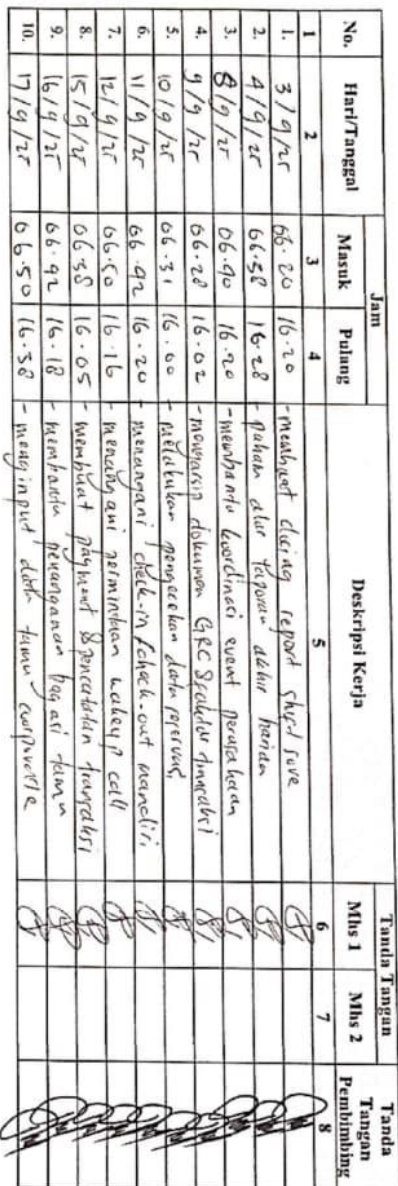 No. Hari/Tanggal Jam Deskripsi Kerja Tanda Tangan Tanda Tangan Pembimbing
Masuk Pulang Mhs 1 Mhs 2
1 2 3 4 5 6 7 8
1. 3/9/25 06.20 16.20 - membuat closing report shift sore
2. 4/9/25 06.38 16.28 - paham alur laporan akhir harian
3. 8/9/25 06.40 16.20 - membantu koordinasi event perusahaan
4. 9/9/25 06.28 16.02 - dokumen GRC &
5. 10/9/25 06.31 16.00 - melakukan pengecekan data reservasi
6. 11/9/25 06.42 16.20 - menangani check-in & check-out mandiri
7. 12/9/25 06.50 16.16 - menangani permintaan wakeup call
8. 15/9/25 06.38 16.05 - membuat payment & pencatatan transaksi
9. 16/9/25 06.42 16.18 - membantu penanganan bagasi tamu
10. 17/9/25 06.50 16.38 - menginput data tamu corporate